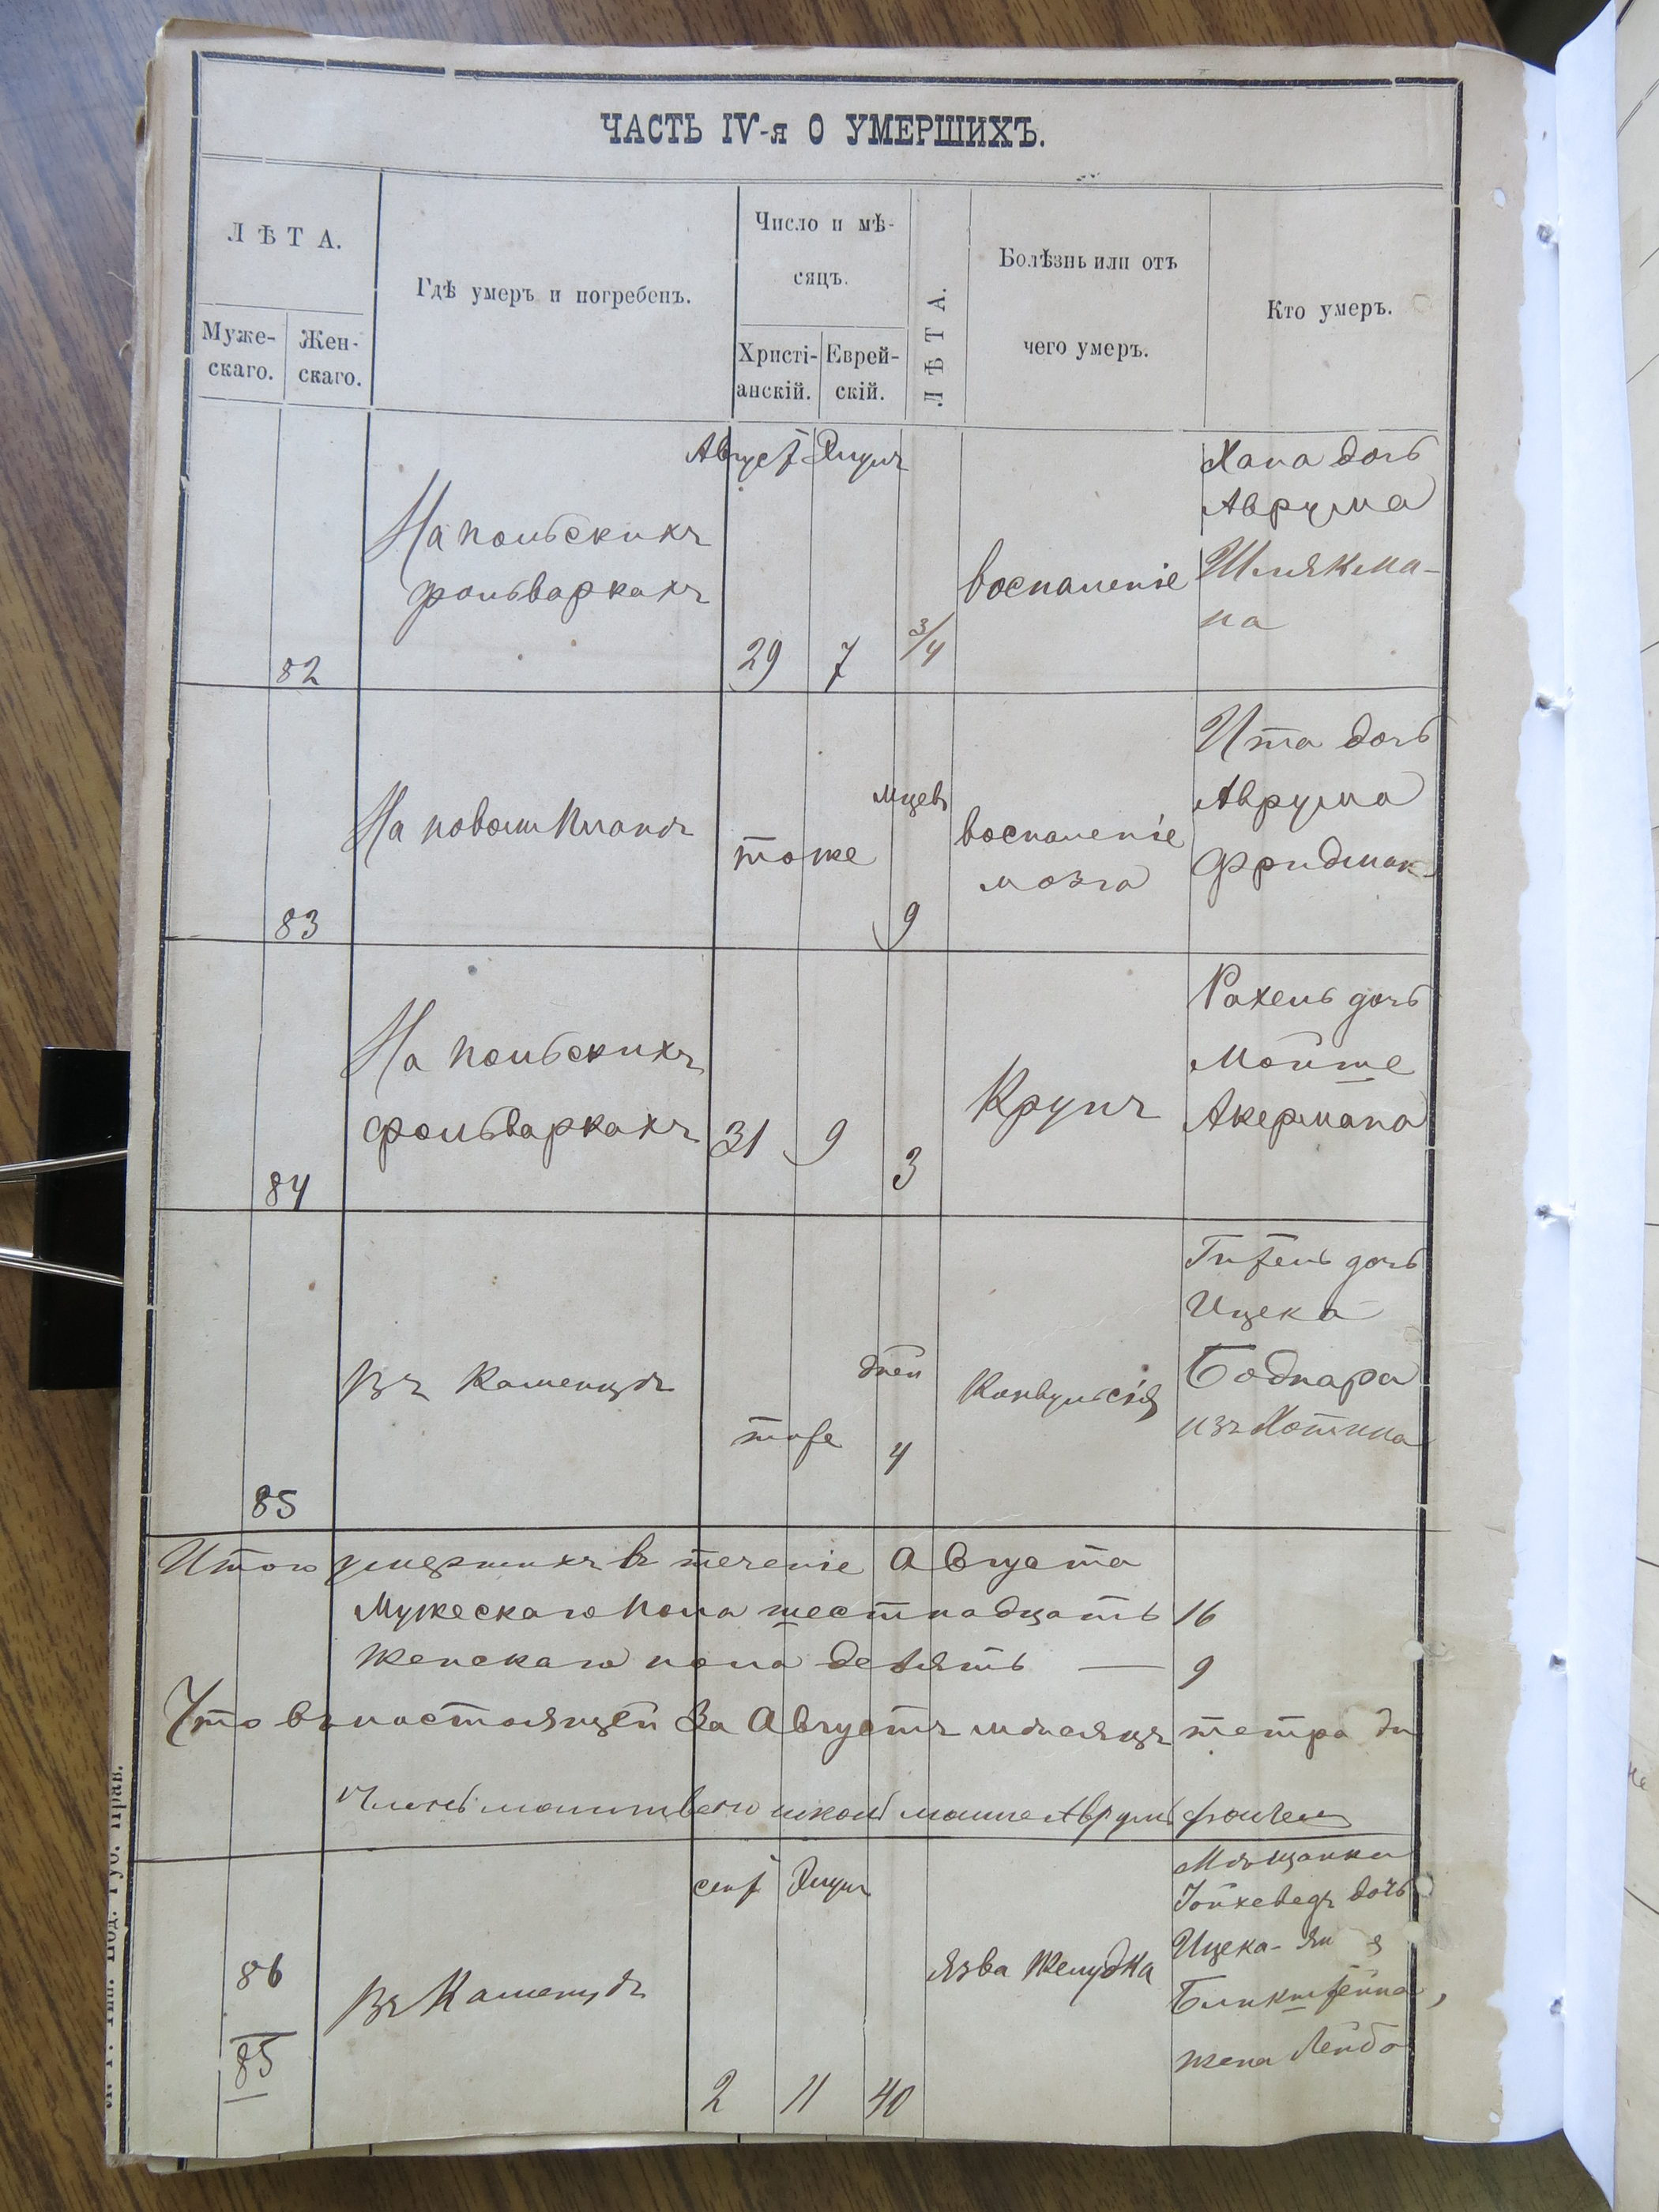 ЧАСТЬ IV-я О УМЕРШИХЪ.
ЛѢТА.
Муже-
скаго.
Жен-
скаго.
Гдѣ умеръ и погребенъ.
Число и мѣ-
сяцъ.
Христі-
анскій.
Еврей-
скій.
ЛѢТА.
Болѣзнь или отъ
чего умеръ.
Кто умеръ.
82
На польскихъ
фольваркахъ
Август Элулъ
29 7 3/4
воспаленіе
Хана дочь
Аврума
Шлякма-
на
83
На новомъ планѣ
тоже
мцевъ
9
воспаленіе
мозга
Ита дочь
Аврума
Фридман
84
На польскихъ
фольваркахъ
31 9 3
Крупъ
Рахель дочь
Мойше
Акермана
85
Въ Каменцѣ
тоже
дней
4
Конвульсія
Гитель дочь
Ицека
Боднара
изъ Хотина
Итого умершихъ въ теченіе Августа
Мужескаго пола шестнадцать 16
Женскаго пола девять — 9
Что въ настоящей за Августъ мѣсяцъ тетради
Члены молитвенно школы
86
85
Въ Каменцѣ
сент Элулъ
2 11 40
язва желудка
Мѣщанка
Іойхеведъ дочь
Ицека-
Бликштейна,
жена Лейбо
Под. Губ. Прав.